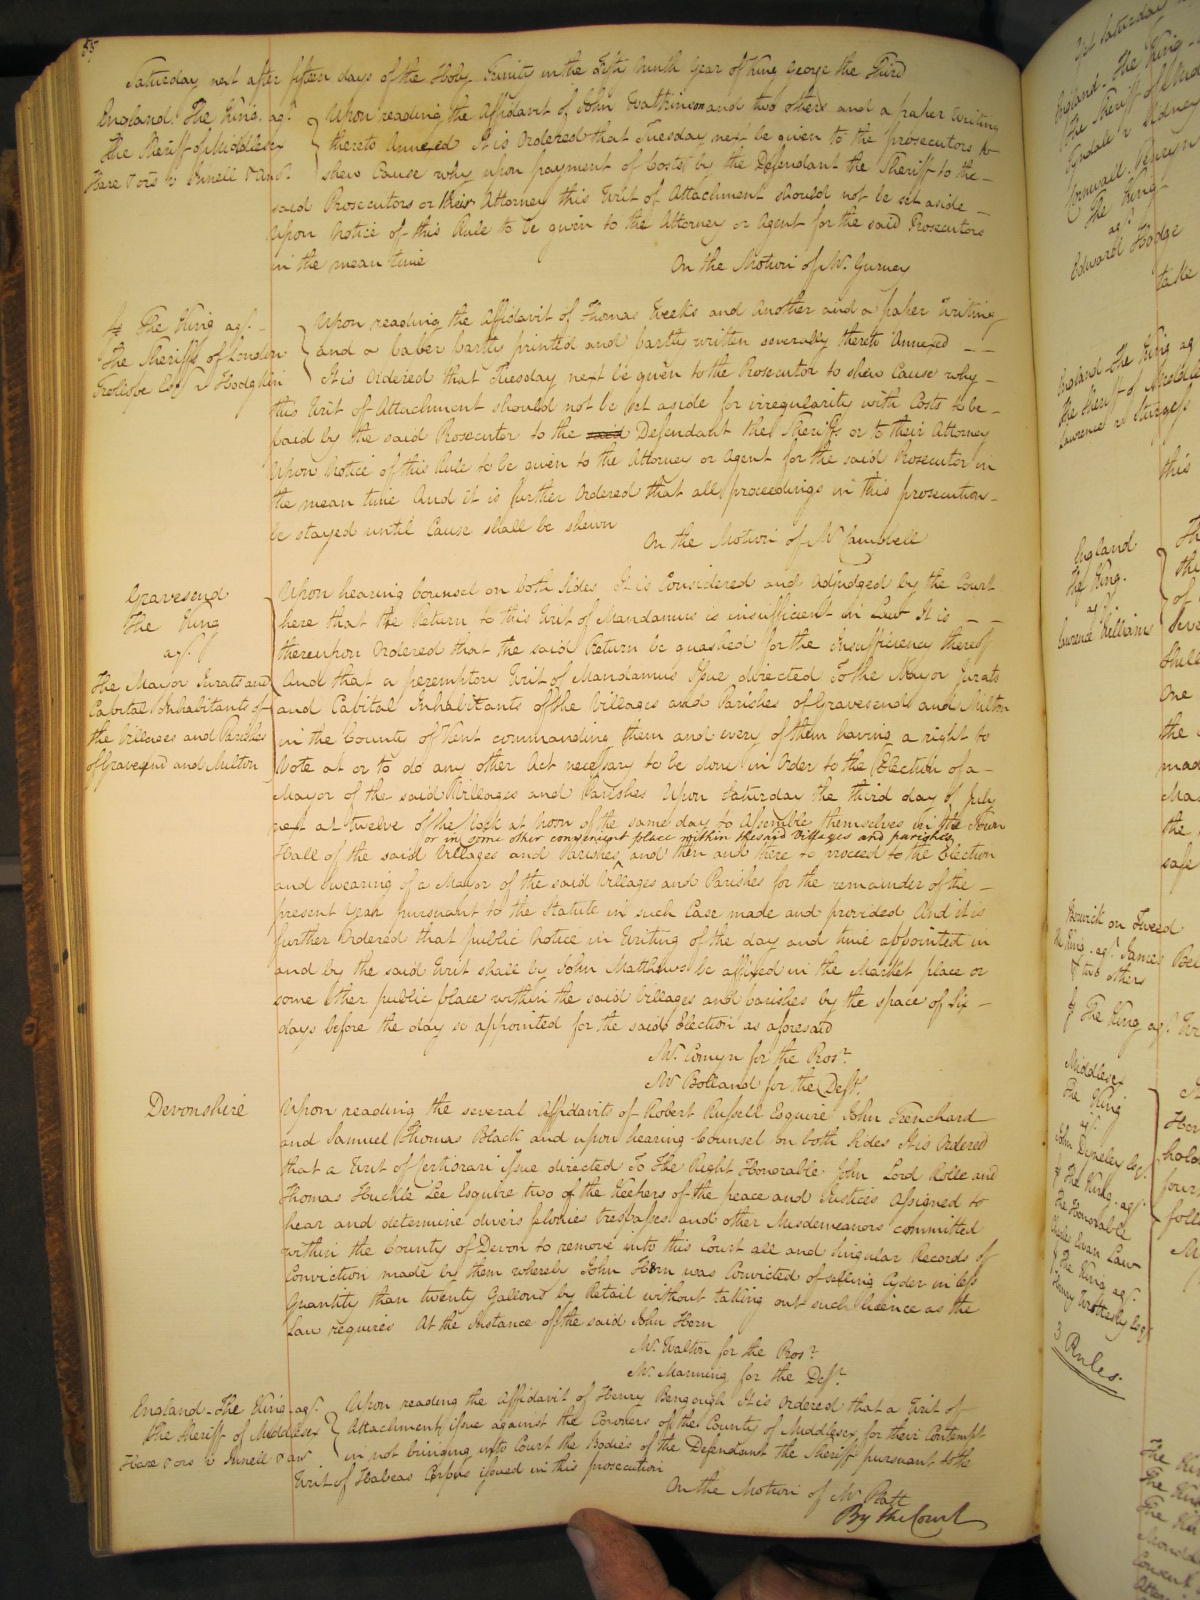 Saturday next after fifteen days of the Holy Trinity in the Fifty Ninth Year of King George the Third
England. The King agt.
The Sheriff of Middlesex
Hare & ors v Innell & anr.
Upon reading the Affidavit of John Watkinson and two others and a paper Writing
thereto Annexed It is Ordered that Tuesday next be given to the prosecutors to
shew Cause why upon payment of Costs by the Defendant the Sheriff to the
said Prosecutors or their Attorney this Writ of Attachment should not be set aside
Upon Notice of this Rule to be given to the Attorney or Agent for the said Prosecutors
in the mean time
On the Motion of Mr. Gurney
The King agt.
The Sheriffs of London
Trollope Esq v Hodgkin
Upon reading the Affidavit of Thomas Weeks and Another and a paper Writing
and a paper partly printed and partly written severally thereto Annexed
It is Ordered that Tuesday next be given to the Prosecutor to shew Cause why
this Writ of Attachment should not be set aside for irregularity with Costs to be
paid by the said Prosecutor to the said Defendant the Sheriffs or to their Attorney
Upon Notice of this Rule to be given to the Attorney or Agent for the said Prosecutor in
the mean time And it is further Ordered that all proceedings in this prosecution
be stayed until Cause shall be shewn
On the Motion of Mr Campbell
Gravesend
The King
agt.
The Mayor Jurats and
Capital Inhabitants of
the Villages and Parishes
of Gravesend and Milton
Upon hearing Counsel on both sides It is Considered and Adjudged by the Court
here that the Return to this Writ of Mandamus is insufficient in Law It is
thereupon Ordered that the said Return be quashed for the Insufficiency thereof
And that a peremptory Writ of Mandamus Issue directed To the Mayor Jurats
and Capital Inhabitants of the Villages and Parishes of Gravesend and Milton
in the County of Kent commanding them and every of them having a right to
Vote at or to do any other Act necessary to be done in Order to the Election of a
Mayor of the said Villages and Parishes Upon Saturday the third day of July
next at twelve of the Clock at Noon of the same day to Assemble themselves in the Town
or in some other convenient place within the said Villages and parishes
Hall of the said Villages and Parishes and then and there to proceed to the Election
and swearing of a Mayor of the said Villages and Parishes for the remainder of the
present Year pursuant to the Statute in such Case made and provided And it is
further Ordered that public Notice in Writing of the day and time appointed in
and by the said Writ shall by John Matthews be affixed in the Market place or
some Other public place within the said Villages and parishes by the space of Six
days before the day so appointed for the said Election as aforesaid
Mr. Comyn for the Prosr.
Mr Bolland for the Deft.
Devonshire
Upon reading the several Affidavits of Robert Russell Esquire John Trenchard
and Samuel Thomas Black and upon hearing Counsel on both Sides It is Ordered
that a Writ of Certiorari issue directed To The Right Honorable John Lord Rolle and
Thomas Huckle Lee Esquire two of the Keepers of the peace and Justices Assigned to
hear and determine divers felonies trespasses and other Misdemeanors committed
within the County of Devon to remove into this Court all and singular Records of
Conviction made by them whereby John Hern was Convicted of selling Cyder in less
Quantity than twenty Gallons by Retail without taking out such licence as the
Law requires At the Instance of the said John Hern
Mr. Walton for the Prosr.
Mr. Manning for the Deft.
England - The King agt.
The Sheriff of Middlesex
Hare & ors v Innell & anr
Upon reading the Affidavit of Henry Bengough It is Ordered that a Writ of
Attachment issue against the Coroners of the County of Middlesex for their Contempt
in not bringing into Court the Bodies of the Defendant the Sheriff pursuant to the
Writ of Habeas Corpus issued in this prosecution
On the Motion of Mr Platt
By the Court
England The King
The Sheriff of
Tyndale v Sidney
Cornwall. Penryn
The King
agt.
Edward Hodge
take
England The King ag
The Sheriff of Middle
Lawrence v Sturgess
this
England
The King.
agt.
Lawrence Williams
One
the
Berwick on Tweed
The King. agt. James Bell
& two others
The King agt.
Middlesex
The King
agt.
John Dineley Esq.
The King. agt.
The Honorable
Charles Ewan Law
The King agt.
Henry Wrottesley Esq.
3 Rules.